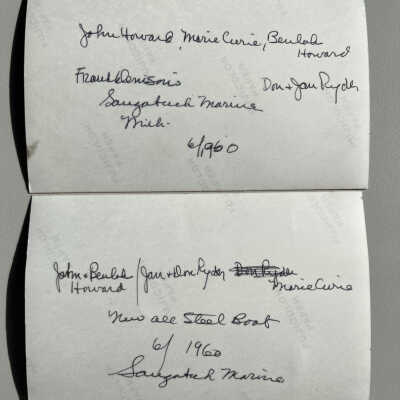 John Howard, Marie Curie, Beulah
Howard
Frank Denison's Don + Jan Ryder
Saugatuck Marina
Mich.
6/1960
John + Beulah / Jan + Don Ryder Don Ryder
Howard Marie Curie
New all Steel Boat
6/ 1960
Saugatuck Marina